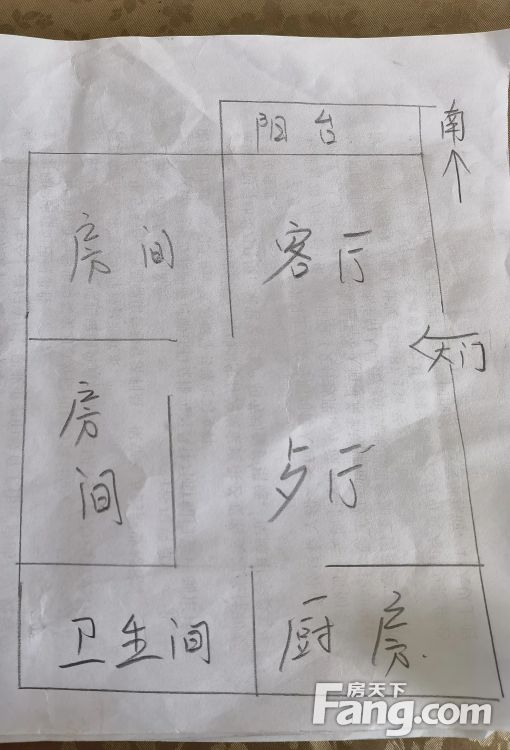 阳台
南
房间
客厅
大门
房间
歺厅
卫生间
厨房.
房天下
Fang.com